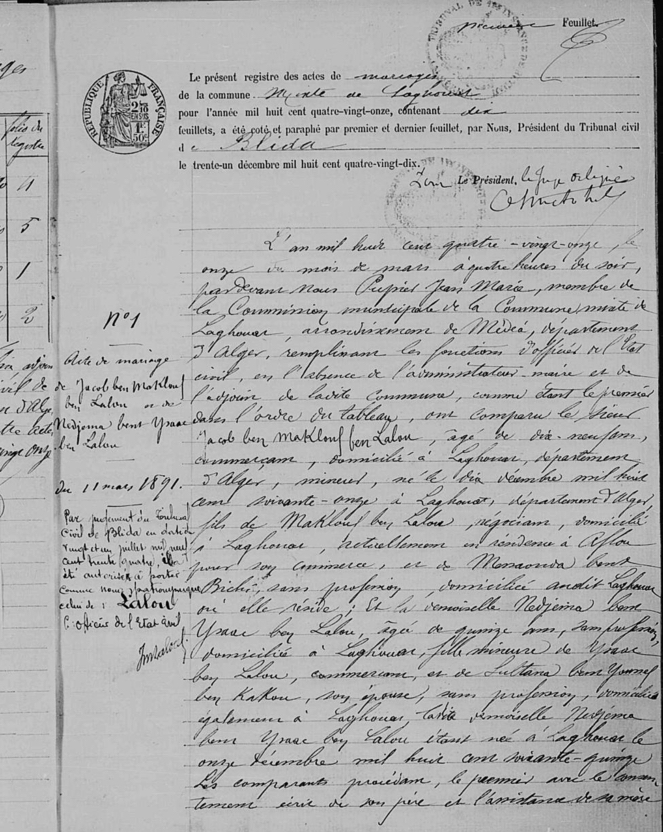 premier Feuillet.
TRIBUNAL DE 1RE INSTANCE DE
RÉPUBLIQUE FRANÇAISE
Le présent registre des actes de mariages
de la commune Mixte de Laghouat
pour l'année mil huit cent quatre-vingt-onze, contenant dix
feuillets, a été coté et paraphé par premier et dernier feuillet, par Nous, Président du Tribunal civil
de Blida
le trente-un décembre mil huit cent quatre-vingt-dix.
Pour Le Président, le Juge
folio du
registre
4
5
1
2
N° 1
Acte de mariage
de Jacob ben Maklouf
ben Lalou et de
Nedjema bent Ysaac
ben Lalou
Du 11 mars 1891.
Par jugement du Tribunal
Civil de Blida en date du
vingt et un juillet mil neuf
cent trente quatre, ils ont
été autorisés à porter
comme nom patronymique
celui de : Lalou
L'officier de l'Etat Civil
L'an mil huit cent quatre-vingt-onze, le
onze du mois de mars à quatre heures du soir,
pardevant Nous Pupier Jean Marie, membre de
la Commission municipale de la Commune mixte de
Laghouat, arrondissement de Médéa, département
d'Alger, remplissant les fonctions d'officier de l'Etat
civil, en l'absence de l'administrateur-maire et de
l'adjoint de ladite commune, comme étant le premier
dans l'ordre du tableau, ont comparu le sieur
Jacob ben Maklouf ben Lalou, âgé de dix-neuf ans,
commerçant, domicilié à Laghouat, département
d'Alger, mineur, né le dix décembre mil huit
cent soixante-onze à Laghouat, département d'Alger,
fils de Maklouf ben Lalou, négociant, domicilié
à Laghouat, actuellement en résidence à Aflou
pour son commerce, et de Messaouda bent
Bichi, sans profession, domiciliée audit Laghouat
où elle réside ; Et la demoiselle Nedjema bent
Ysaac ben Lalou, âgée de quinze ans, sans profession,
domiciliée à Laghouat, fille mineure de Ysaac
ben Lalou, commerçant, et de Sultana bent Youssef
ben Kakou, son épouse, sans profession, domiciliés
également à Laghouat, ladite demoiselle Nedjema
bent Ysaac ben Lalou étant née à Laghouat le
onze décembre mil huit cent soixante-quinze
Les comparants procédant, le premier avec le consen-
tement écrit de son père et l'assistance de sa mère